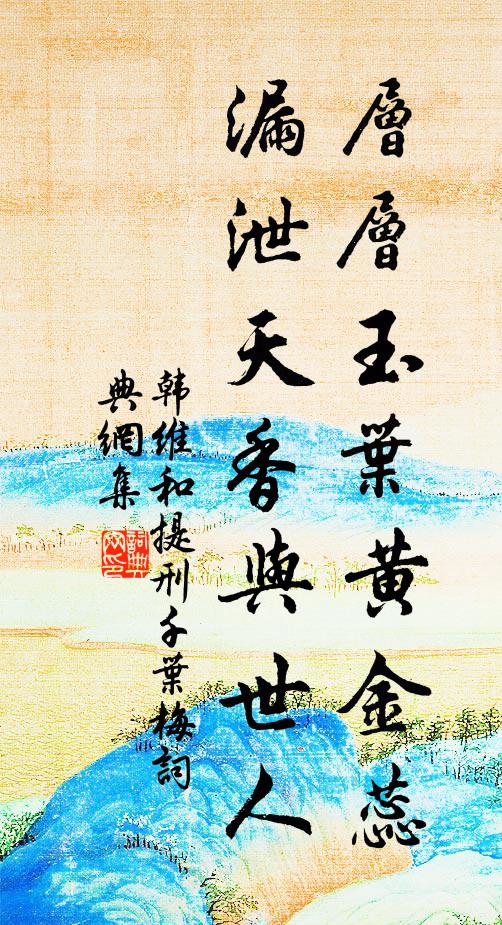 層層玉葉黃金蕊
漏泄天香與世人
韩維和提刑千葉梅詞
典網集
詞典網印